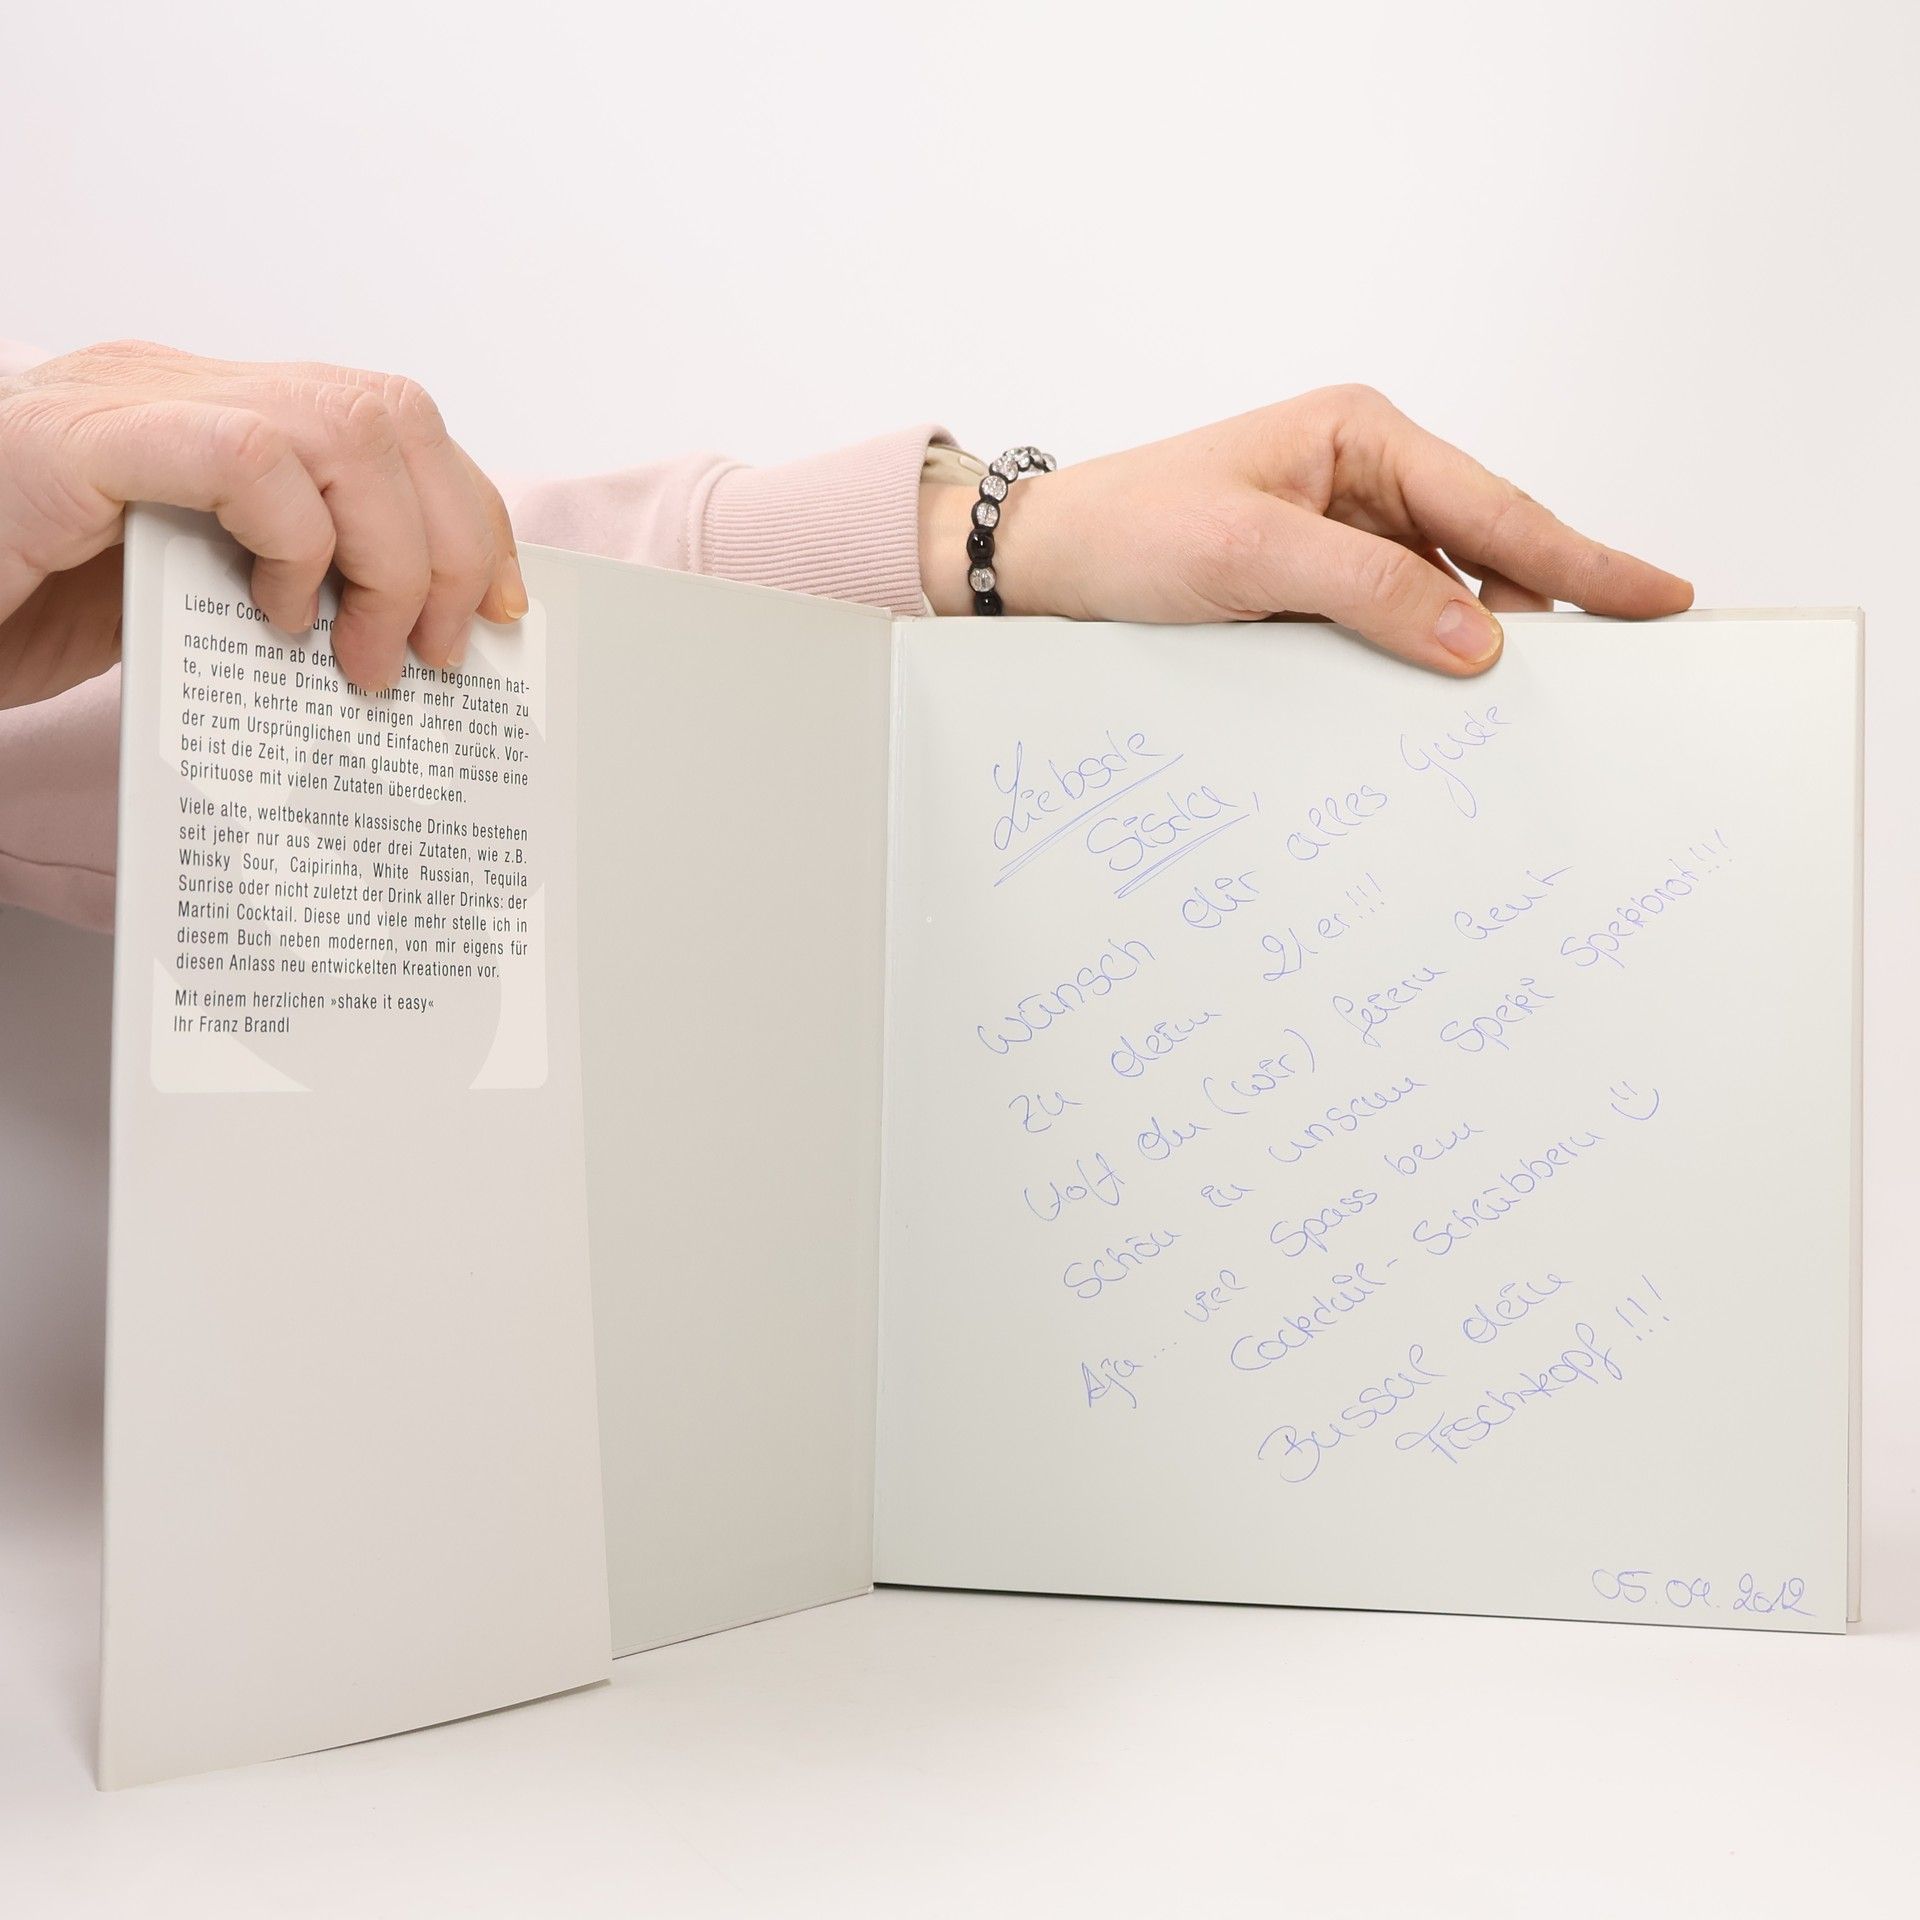 Lieber
nachdem man ab den ahren begonnen hat-
te, viele neue Drinks mit immer mehr Zutaten zu
kreieren, kehrte man vor einigen Jahren doch wie-
der zum Ursprünglichen und Einfachen zurück. Vor-
bei ist die Zeit, in der man glaubte, man müsse eine
Spirituose mit vielen Zutaten überdecken.
Viele alte, weltbekannte klassische Drinks bestehen
seit jeher nur aus zwei oder drei Zutaten, wie z.B.
Whisky Sour, Caipirinha, White Russian, Tequila
Sunrise oder nicht zuletzt der Drink aller Drinks: der
Martini Cocktail. Diese und viele mehr stelle ich in
diesem Buch neben modernen, von mir eigens für
diesen Anlass neu entwickelten Kreationen vor.
Mit einem herzlichen »shake it easy«
Ihr Franz Brandl
Liebsde
Sisda,
wünsch dir alles Gude
zu deim 21er!!!
Hoff du (wir) feiern heut
schön in unsam Speki Spekbrot!!!
Aja... viel Spass beim
Cockdail-Schlübbern
Bussal dein
Fischkopf!!!
05.04.2012